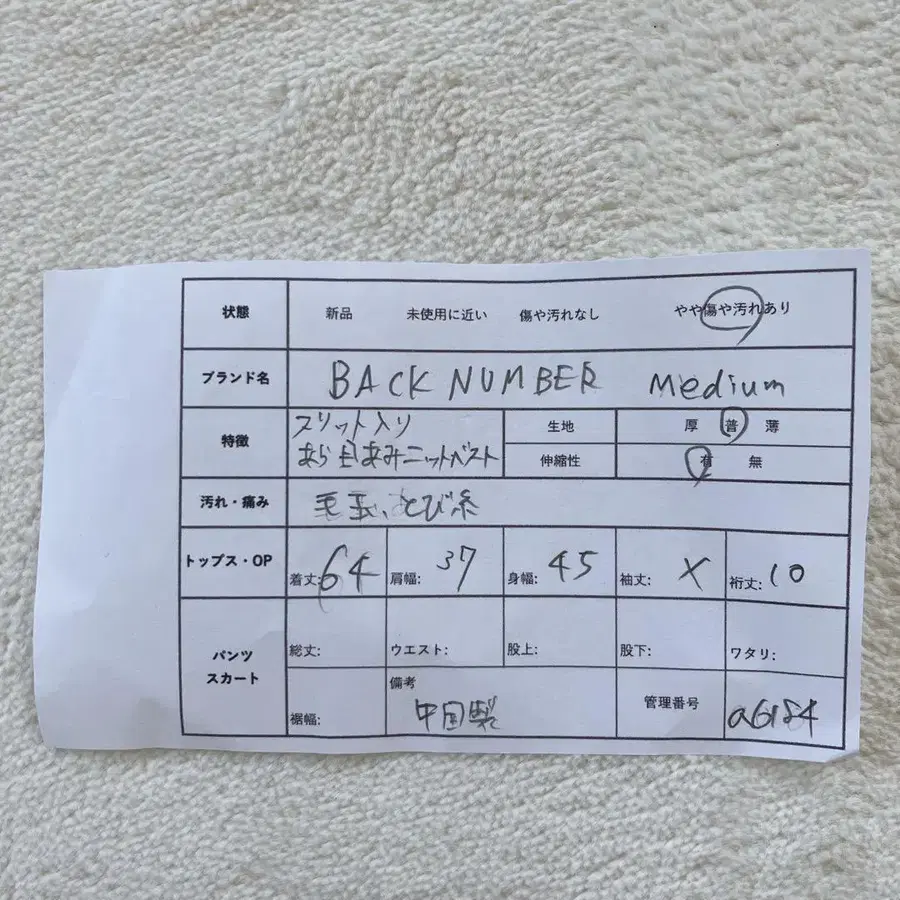 状態 新品 未使用に近い 傷や汚れなし やや傷や汚れあり
ブランド名 BACK NUMBER Medium
特徴 スリット入り 生地 厚 普 薄
あら目あみニットベスト 伸縮性 有 無
汚れ・痛み 毛玉、とび糸
トップス・OP 着丈:64 肩幅:37 身幅:45 袖丈:× 裄丈:10
パンツ スカート 総丈: ウエスト: 股上: 股下: ワタリ:
裾幅: 備考 中国製 管理番号 a6184